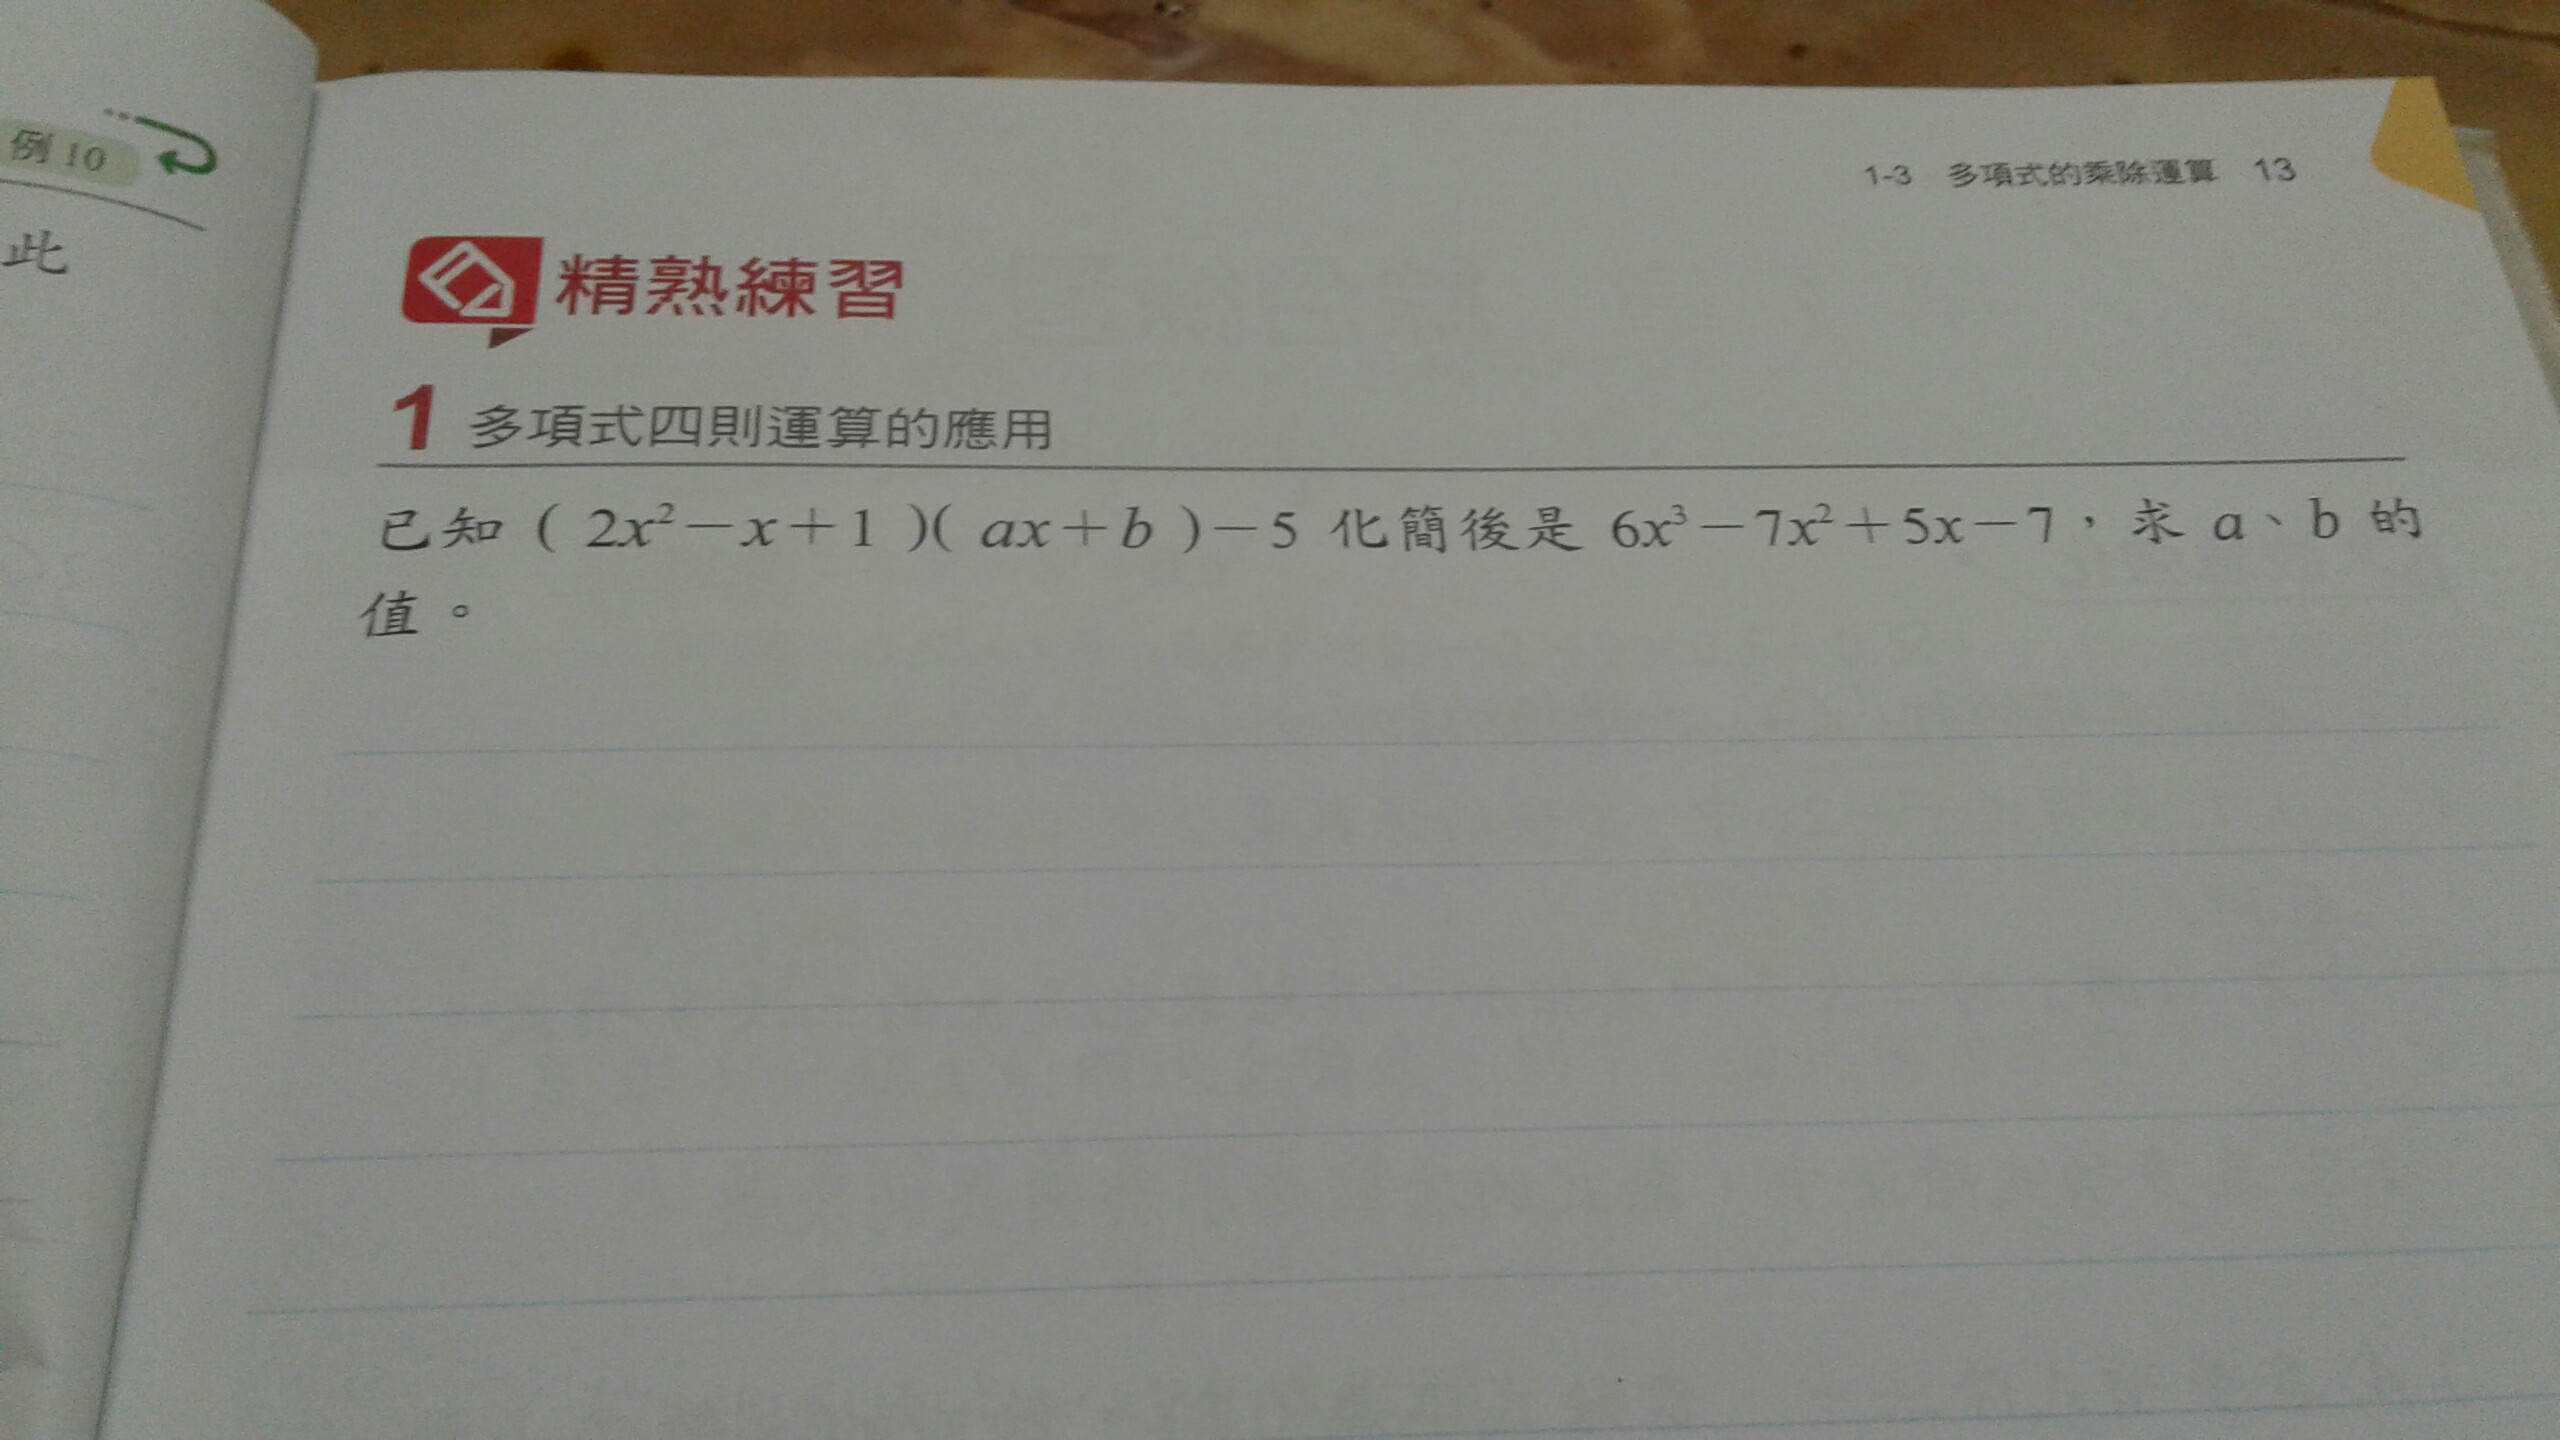 例 10
此
1-3 多項式的乘除運算 13
精熟練習
1 多項式四則運算的應用
已知（2x²－x＋1）（ax＋b）－5 化簡後是 6x³－7x²＋5x－7，求 a、b 的
值。